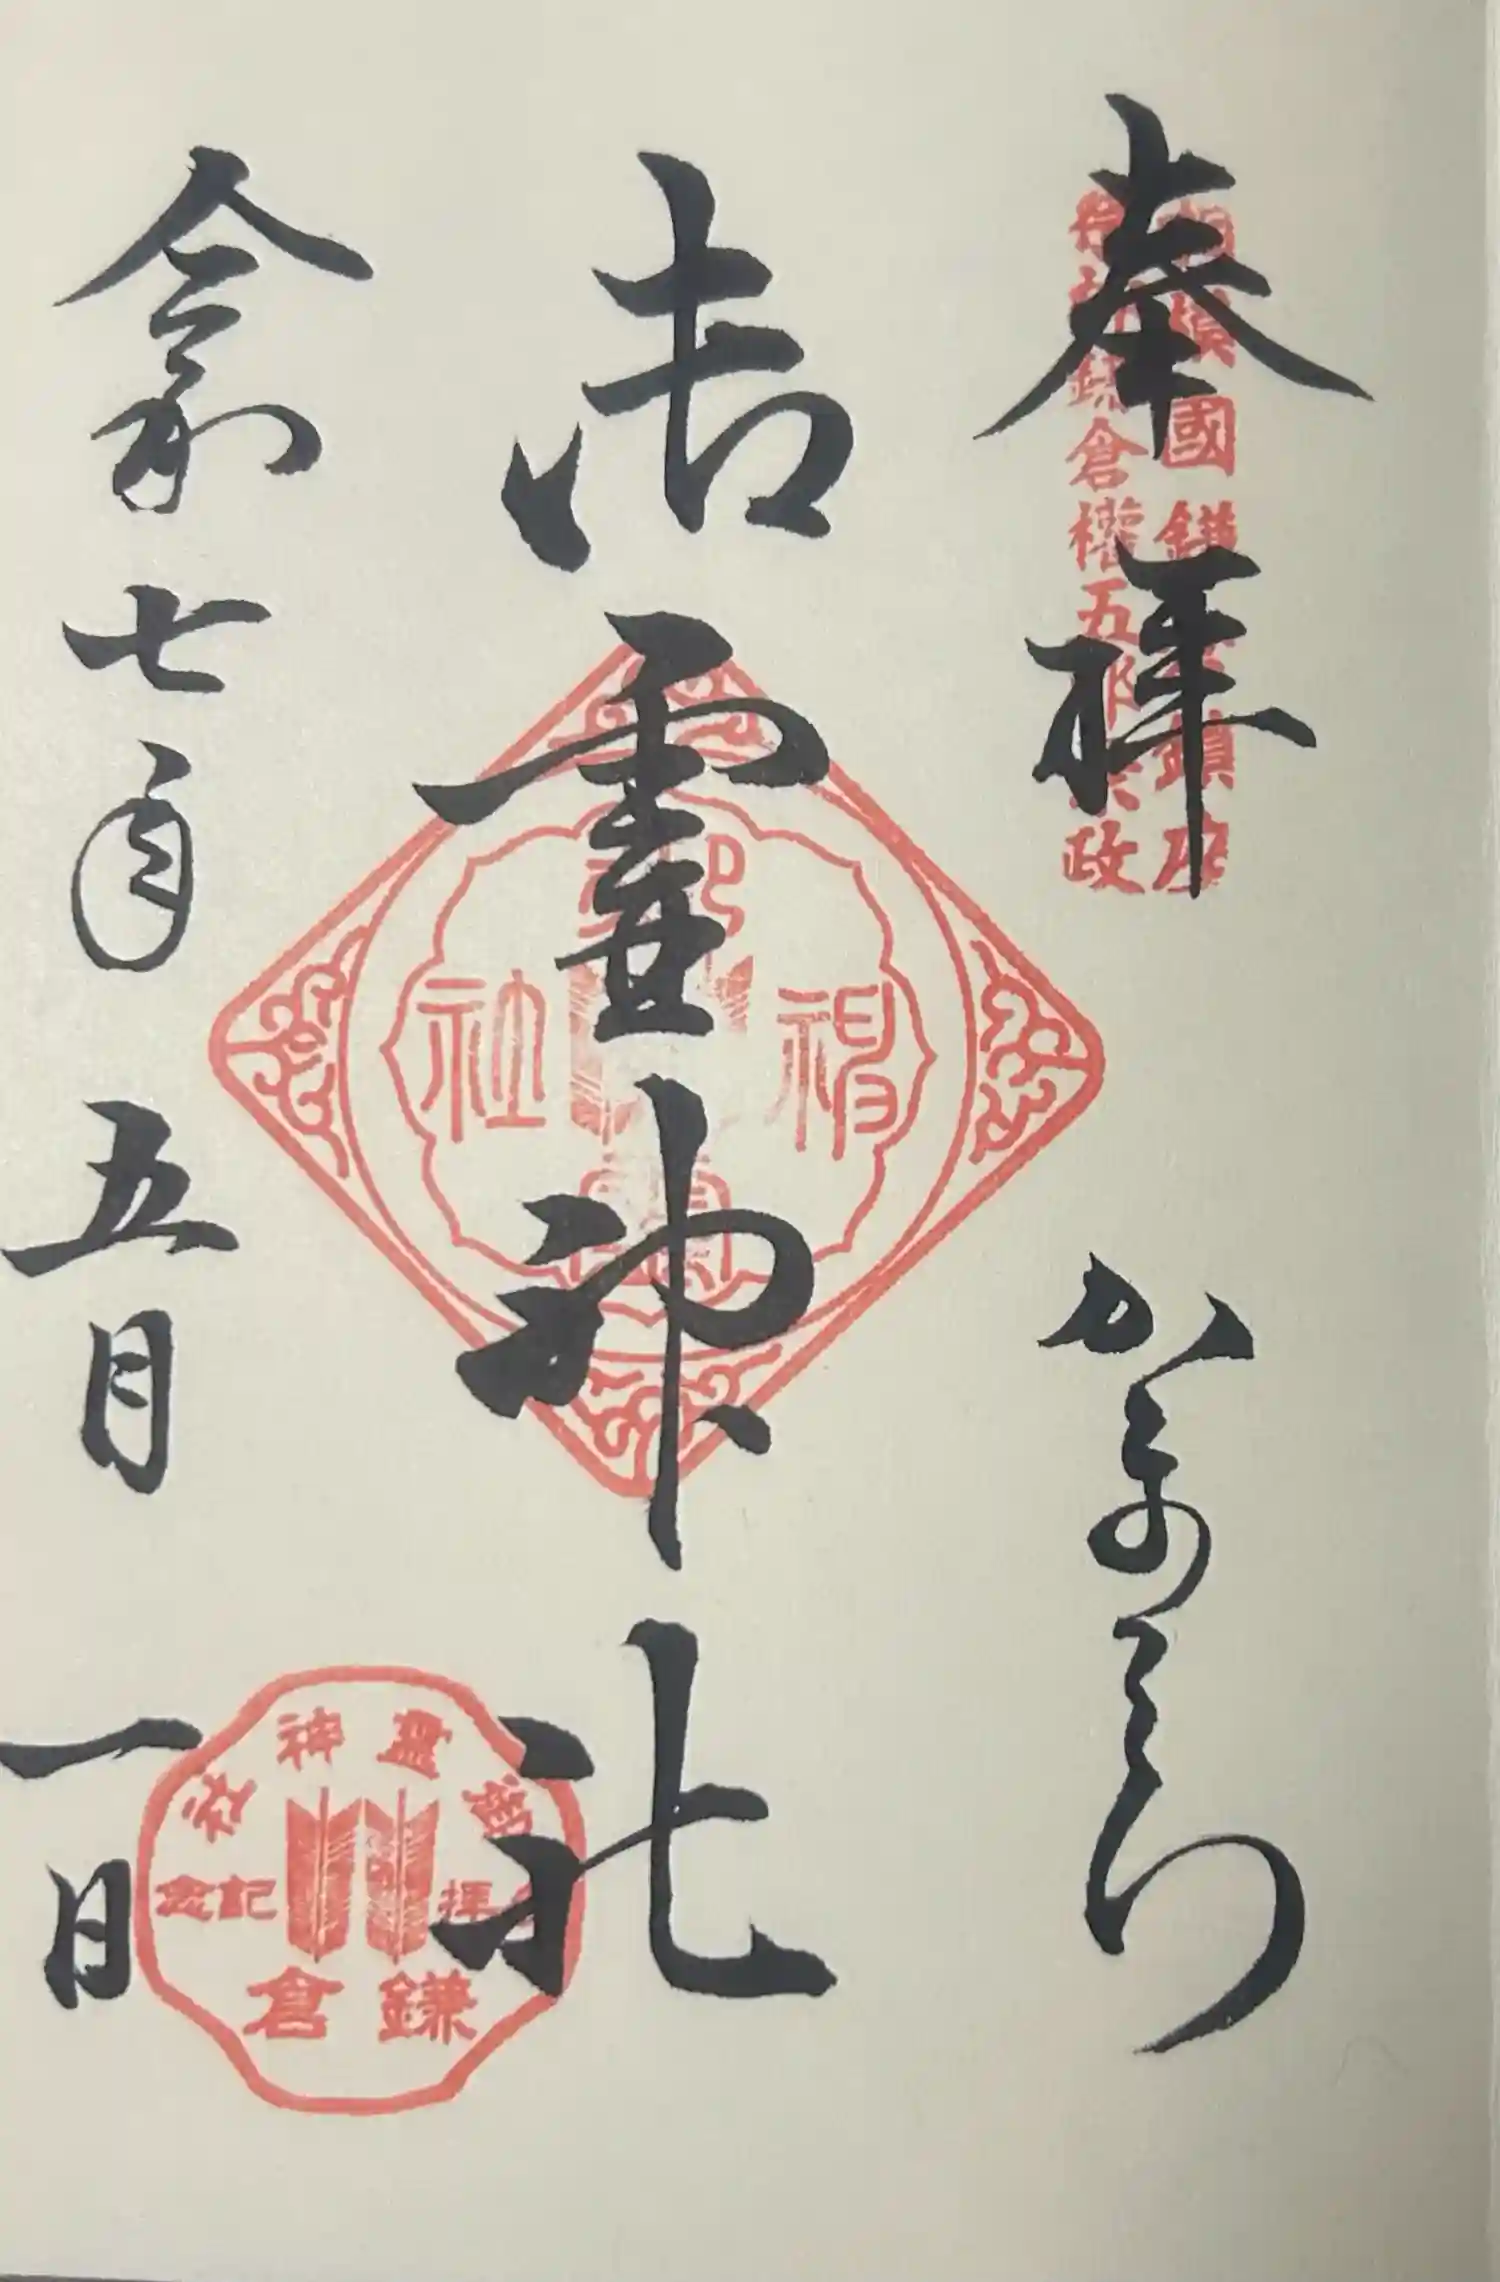 奉拝 かまくら
相模國鎌 鎮座
祭神鎌倉權五郎景政
御霊神社
御靈神社
令和七年五月一日
御霊神社
参拝記念
鎌倉